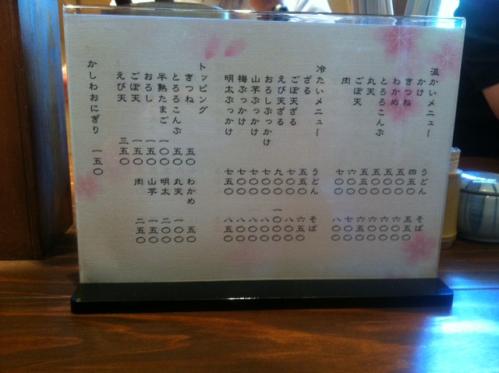 温かいメニュー うどん そば
かけ 四五〇 五五〇
きつね
わかめ
とろろこんぶ
丸天
ごぼ天 六〇〇 七〇〇
肉 七〇〇 八〇〇
冷たいメニュー うどん そば
ざる 五五〇 六五〇
ごぼ天ざる 七〇〇 八〇〇
えび天ざる 九〇〇 一〇〇〇
おろしぶっかけ 七〇〇 八〇〇
山芋ぶっかけ 七〇〇 八〇〇
梅ぶっかけ 七〇〇 八〇〇
明太ぶっかけ 七五〇 八五〇
トッピング
きつね 五〇 わかめ 五〇
とろろこんぶ 一〇〇 丸天 一〇〇
半熟たまご 一〇〇 明太 二〇〇
おろし 一五〇 山芋 一五〇
ごぼ天 一五〇 肉 二五〇
えび天 三五〇
かしわおにぎり 一五〇